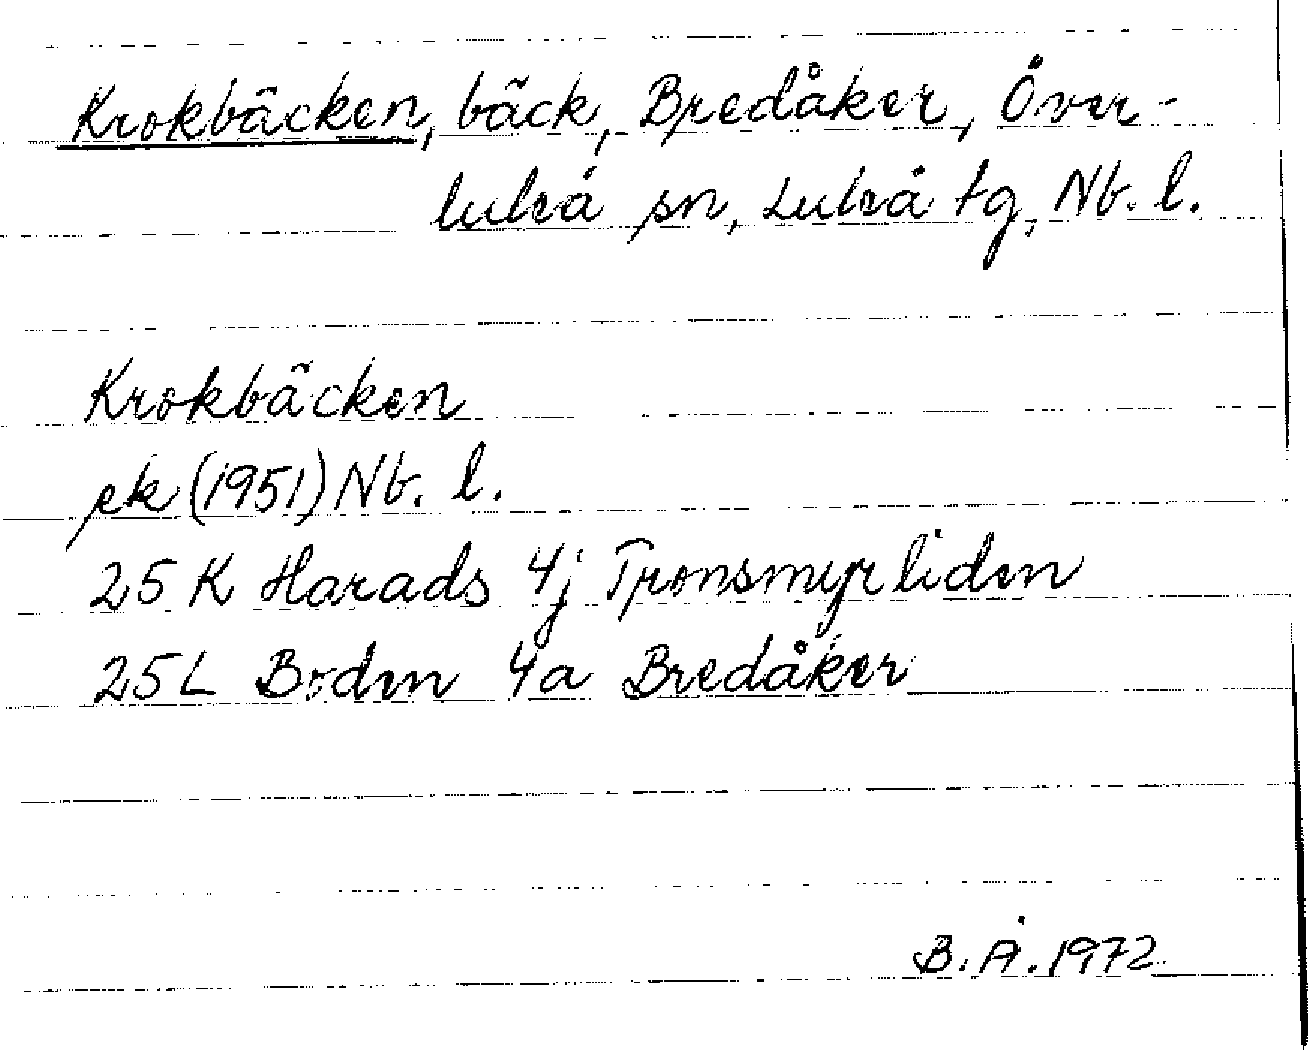 Krokbäcken, bäck, Bredåker, Över-
luleå sn, Luleå tg, Nb. l.
Krokbäcken
ek (1951) Nb. l.
25 K Harads 4j Tronsmyrliden
25 L Boden 4a Bredåker
B. Å. 1972